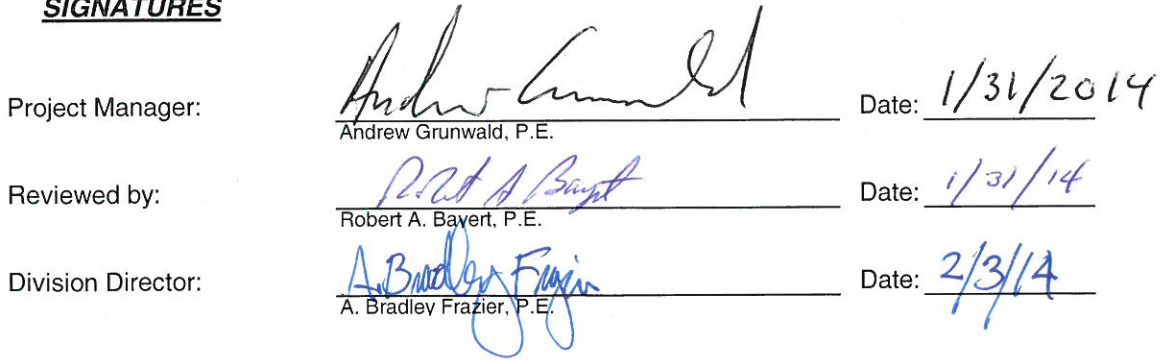 SIGNATURES
Project Manager: Andrew Grunwald Date: 1/31/2014
Andrew Grunwald, P.E.
Reviewed by: Robert A Bayert Date: 1/31/14
Robert A. Bayert, P.E.
Division Director: A. Bradley Frazier Date: 2/3/14
A. Bradley Frazier, P.E.